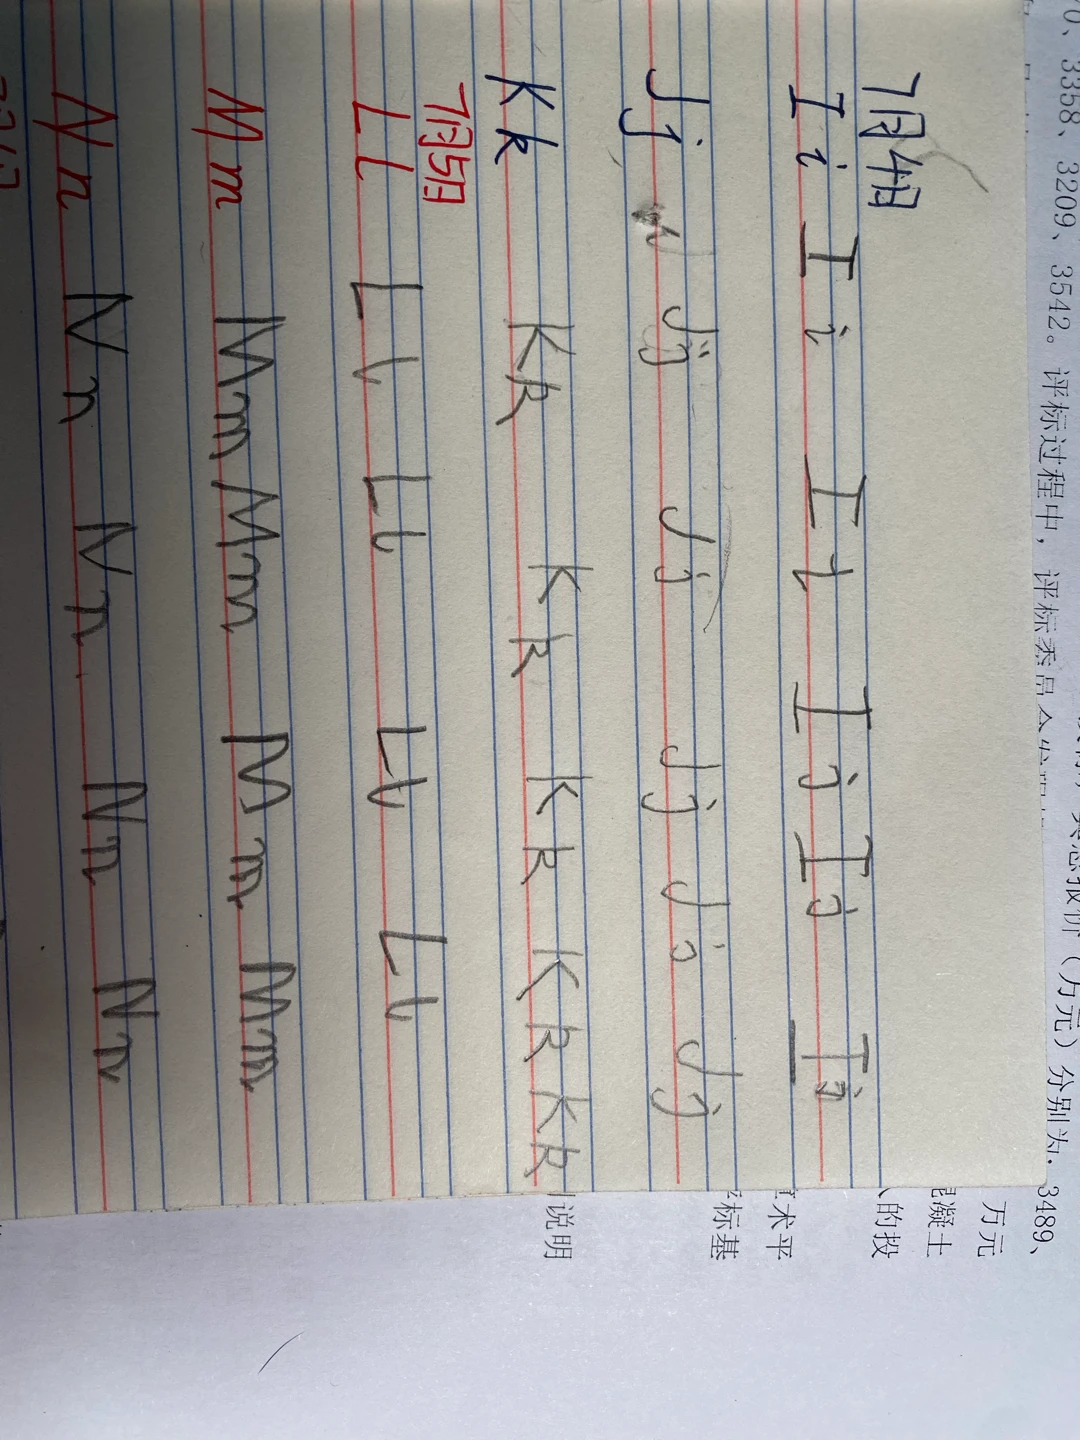 其总报价（万元）分别为：3489、
70、3358、3209、3542。评标过程中，评标委员会发现
万元
凝土
的投
术平
标基
说明
7月4日
I i I i I i I j I j I j
J j J j J j J j J j J j
K k K k K k K k K k K k
7月5日
L l L l L l L l L l
M m M m M m M m M m
N n N n N n N n N n